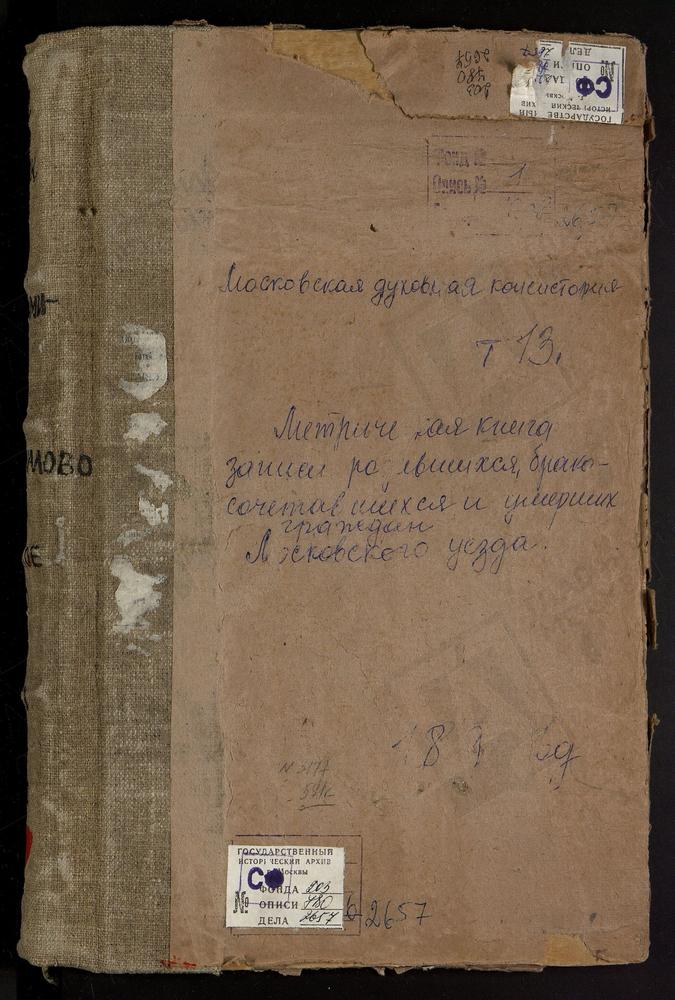 203
780
2657
ГОСУДАРСТВЕ
ИСТОРИЧЕСКИЙ
СФ
№
ДЕЛ
Фонд №
Опись № 1
Московская духовная консистория
т 13.
Метриче кая книга
записи ро ившихся, брако-
сочетавшихся и умерших
граждан
М сковского уезда.
МОВО
№ 3177
ГОСУДАРСТВЕННЫЙ
ИСТОРИЧЕСКИЙ АРХИВ
г. Москвы
СФ
№ ФОНДА 203
ОПИСИ 780
ДЕЛА 2657
2657